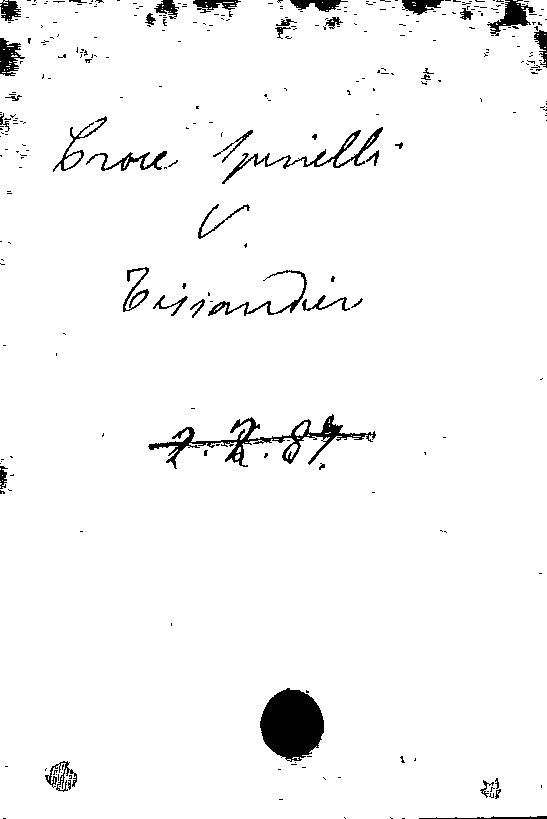 Croce Spinelli
v.
Tissandier
2.2.87.